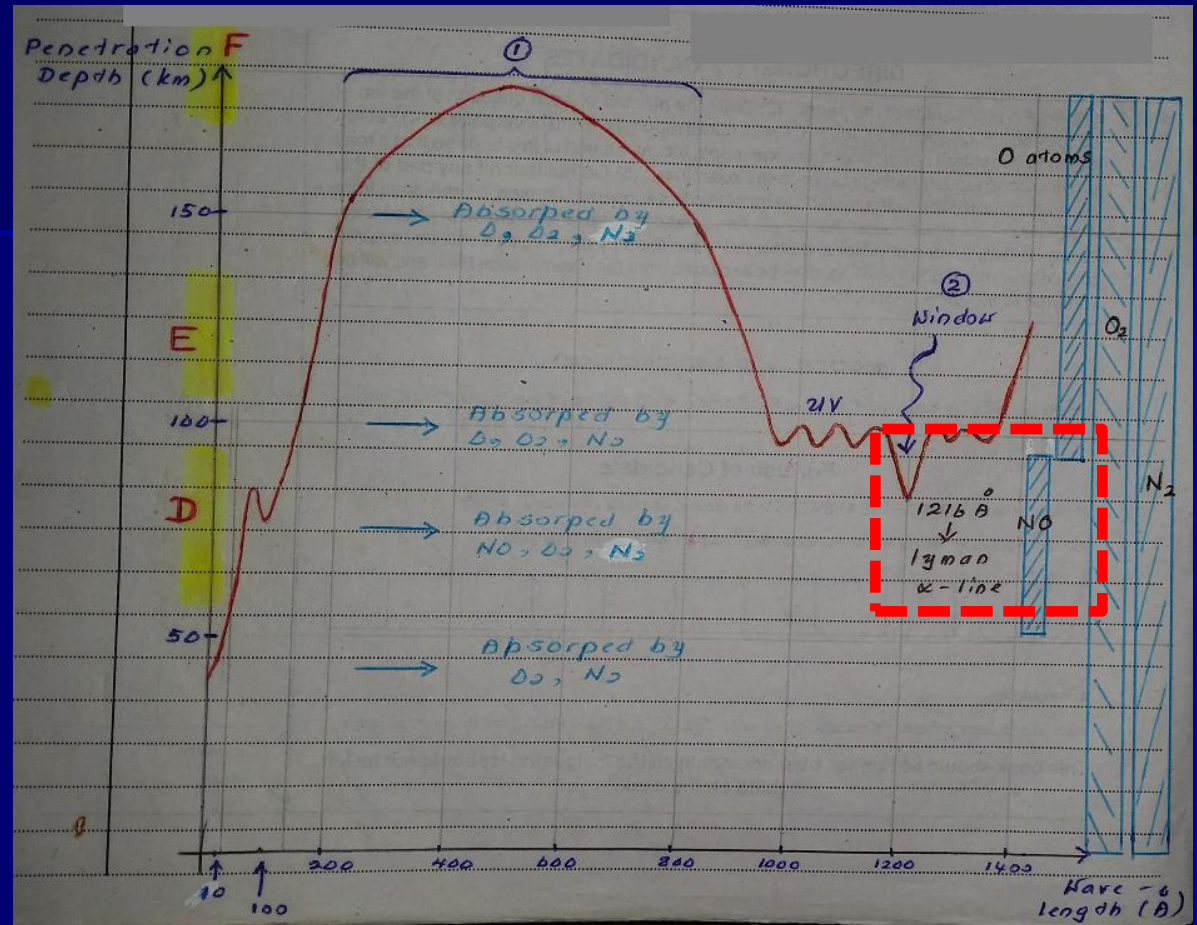 Penetration F
Depth (km)
①
O atoms
150
Absorped by
O, O2, N2
②
Window
E
O2
100
UV
Absorped by
O, O2, N2
N2
D
1216 Å
Absorped by
NO, O2, N2
NO
lyman
α-line
50
Absorped by
O2, N2
0
200 400 600 800 1000 1200 1400
10
100
Wave-
length (Å)